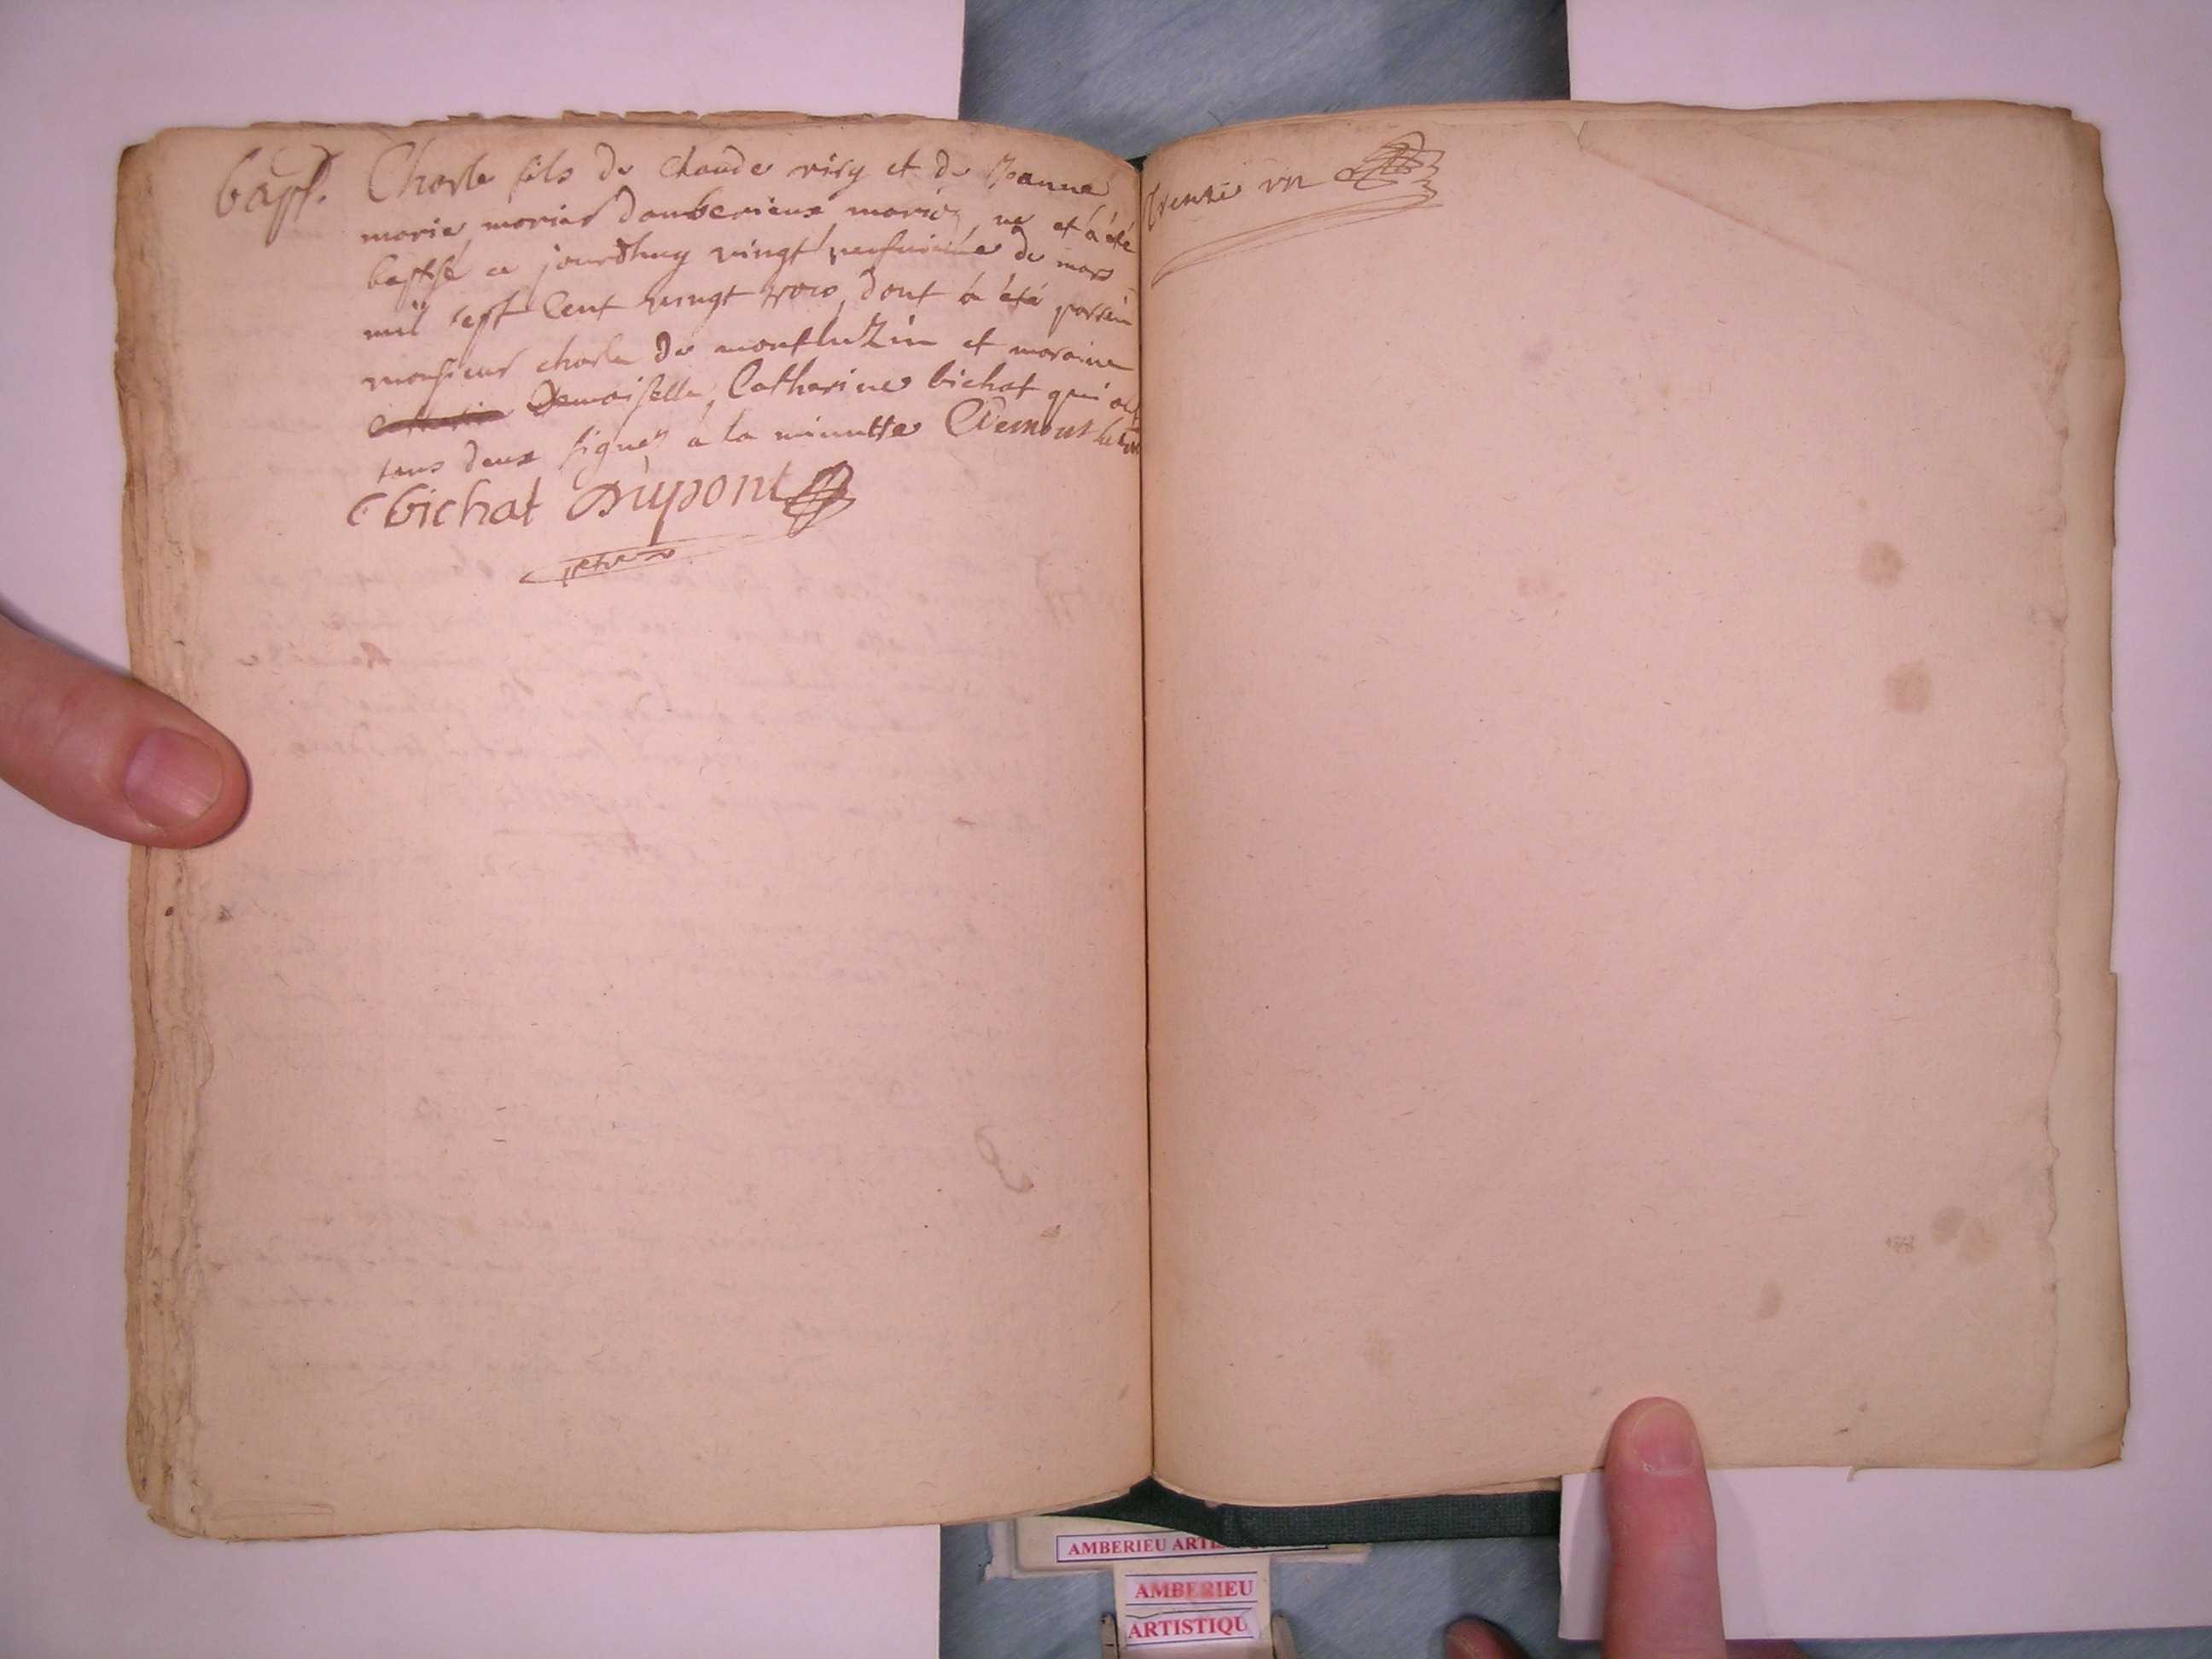 bapt. Charle fils de Claude visy et de Jeanne
marie morier damberieux mariez né et a été
baptisé ce jourdhuy vingt de mars
mil sept Cent vingt trois, dont a été parrein
monsieur charle de montluzin et maraine
Demoiselle Catherine bichat qui ont
tous deux signez à la minutte Demontluzin
C bichat Dupont
ptre
Trente un
AMBERIEU
AMBERIEU
ARTISTIQU